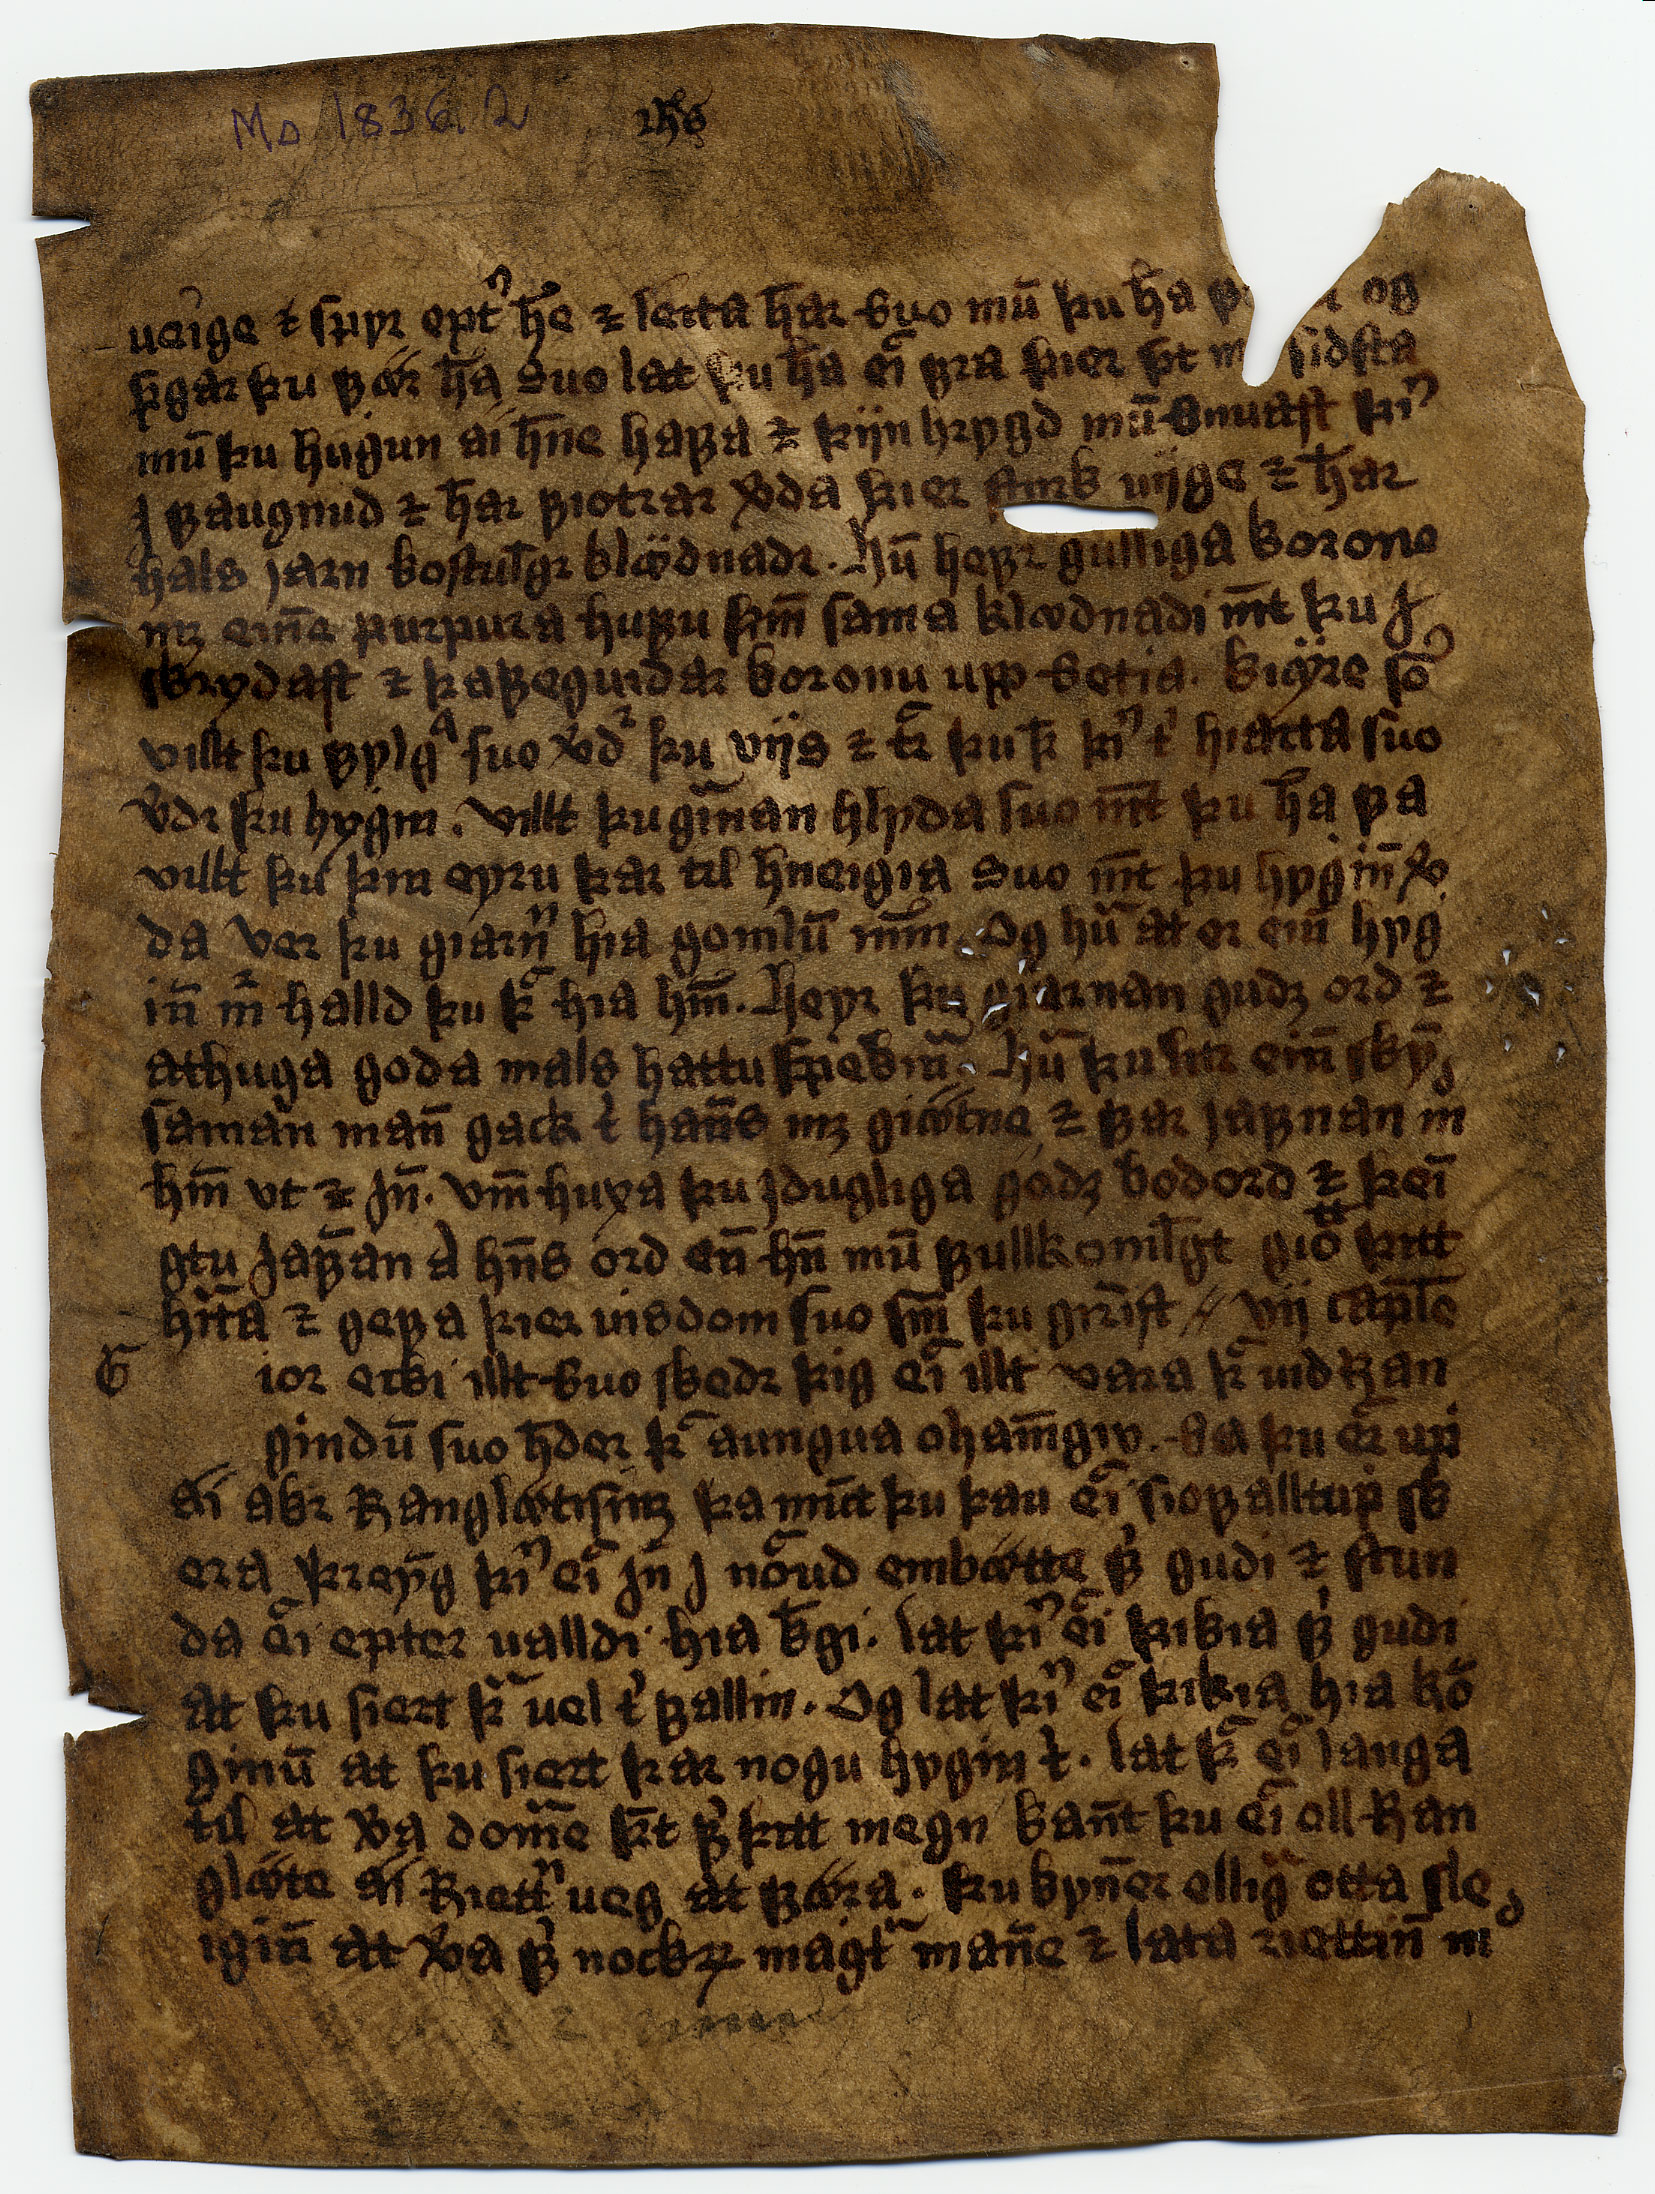 Ms 1836. 2 ihs
ueige ⁊ spyr ept͛ hn̄e ⁊ leita hn̄ar suo mū þu h̄a og
þgar þu fær h̄a suo lat þu h̄a ei fra þier þt sidsta
mū þu hugun ai hn̄e hafa ⁊ þijn hrygd mū snuast þin͛
J faugnud ⁊ h̄ar fiotrar v̆da þier sterk uijge ⁊ h̄ar
hals jarn kostulgr klædnadr. hū hefr gulliga korone
mꝫ eine purpura hufu þm̄ sama klædnadi m̄t þu J
skrydast ⁊ þa feguidar koronu upp setia. kiære so᷎
villt þu fylgᵃ suo v̆dʳ þu vijs ⁊ þu þ̄ hiarta suo
v̆dr þu hygin. villt þu girnan hlyda suo m̄t þu h̄a fa
villt þu þin eyru þar til hneigia suo m̄t þu hygin̄ v̆
da ver þu giarn͛ hia gomlū mm̄. Og hū at er ein̄ hyg
in̄ mʳ halld þu þʳ hia hm̄. heyr þu giarnan gudꝫ ord ⁊
athuga goda mals hattu spekin̄a. hū þu litr ein̄ sky᷎
saman man̄ gack t̉ han̄s mꝫ giætne ⁊ far jafnan m
hm̄ vt ⁊ Jn̄. vm̄ huxa þu jdugliga godꝫ bodord ⁊ þei
gtu Jafn̄an A hn̄s ord en̄ hn̄ mū fullkomlgt gio þitt
hı̄ta ⁊ gefa þier uisdom suo sm̄ þu girn̄ist // vij capl̄e
G ior ecki illt suo skedr þig ei illt vara þʳ uid Ran
gindū suo h̄der þʳ aungua ohamgiu. Sa þu er upᵢ
ai akr Ranglætisinꝫ þa mūt þu þau ei siofalltup sk
era þreyg þin͛ ei Jn̄ J nōud embætte f̉ gudi ⁊ stun
da ei epter ualldi hia k̄gi. lat þin͛ ei þikia f̉ gudi
at þu siert þʳ uel t̉ fallin. Og lat þin͛ ei þikia hia ko᷎
ginū at þu siert þar nogu hygin t̉. lat þʳ ei langa
til at v̆a dom̄e þt f̉ þitt megn kan̄t þu ei oll Ran
glæte ai Riett͛ ueg at færa. þu kyn̄er ellig otta sle
igin̄ at v̆a f̉ nockꝝ magtʳ man̄e ⁊ lata riettin̄ m